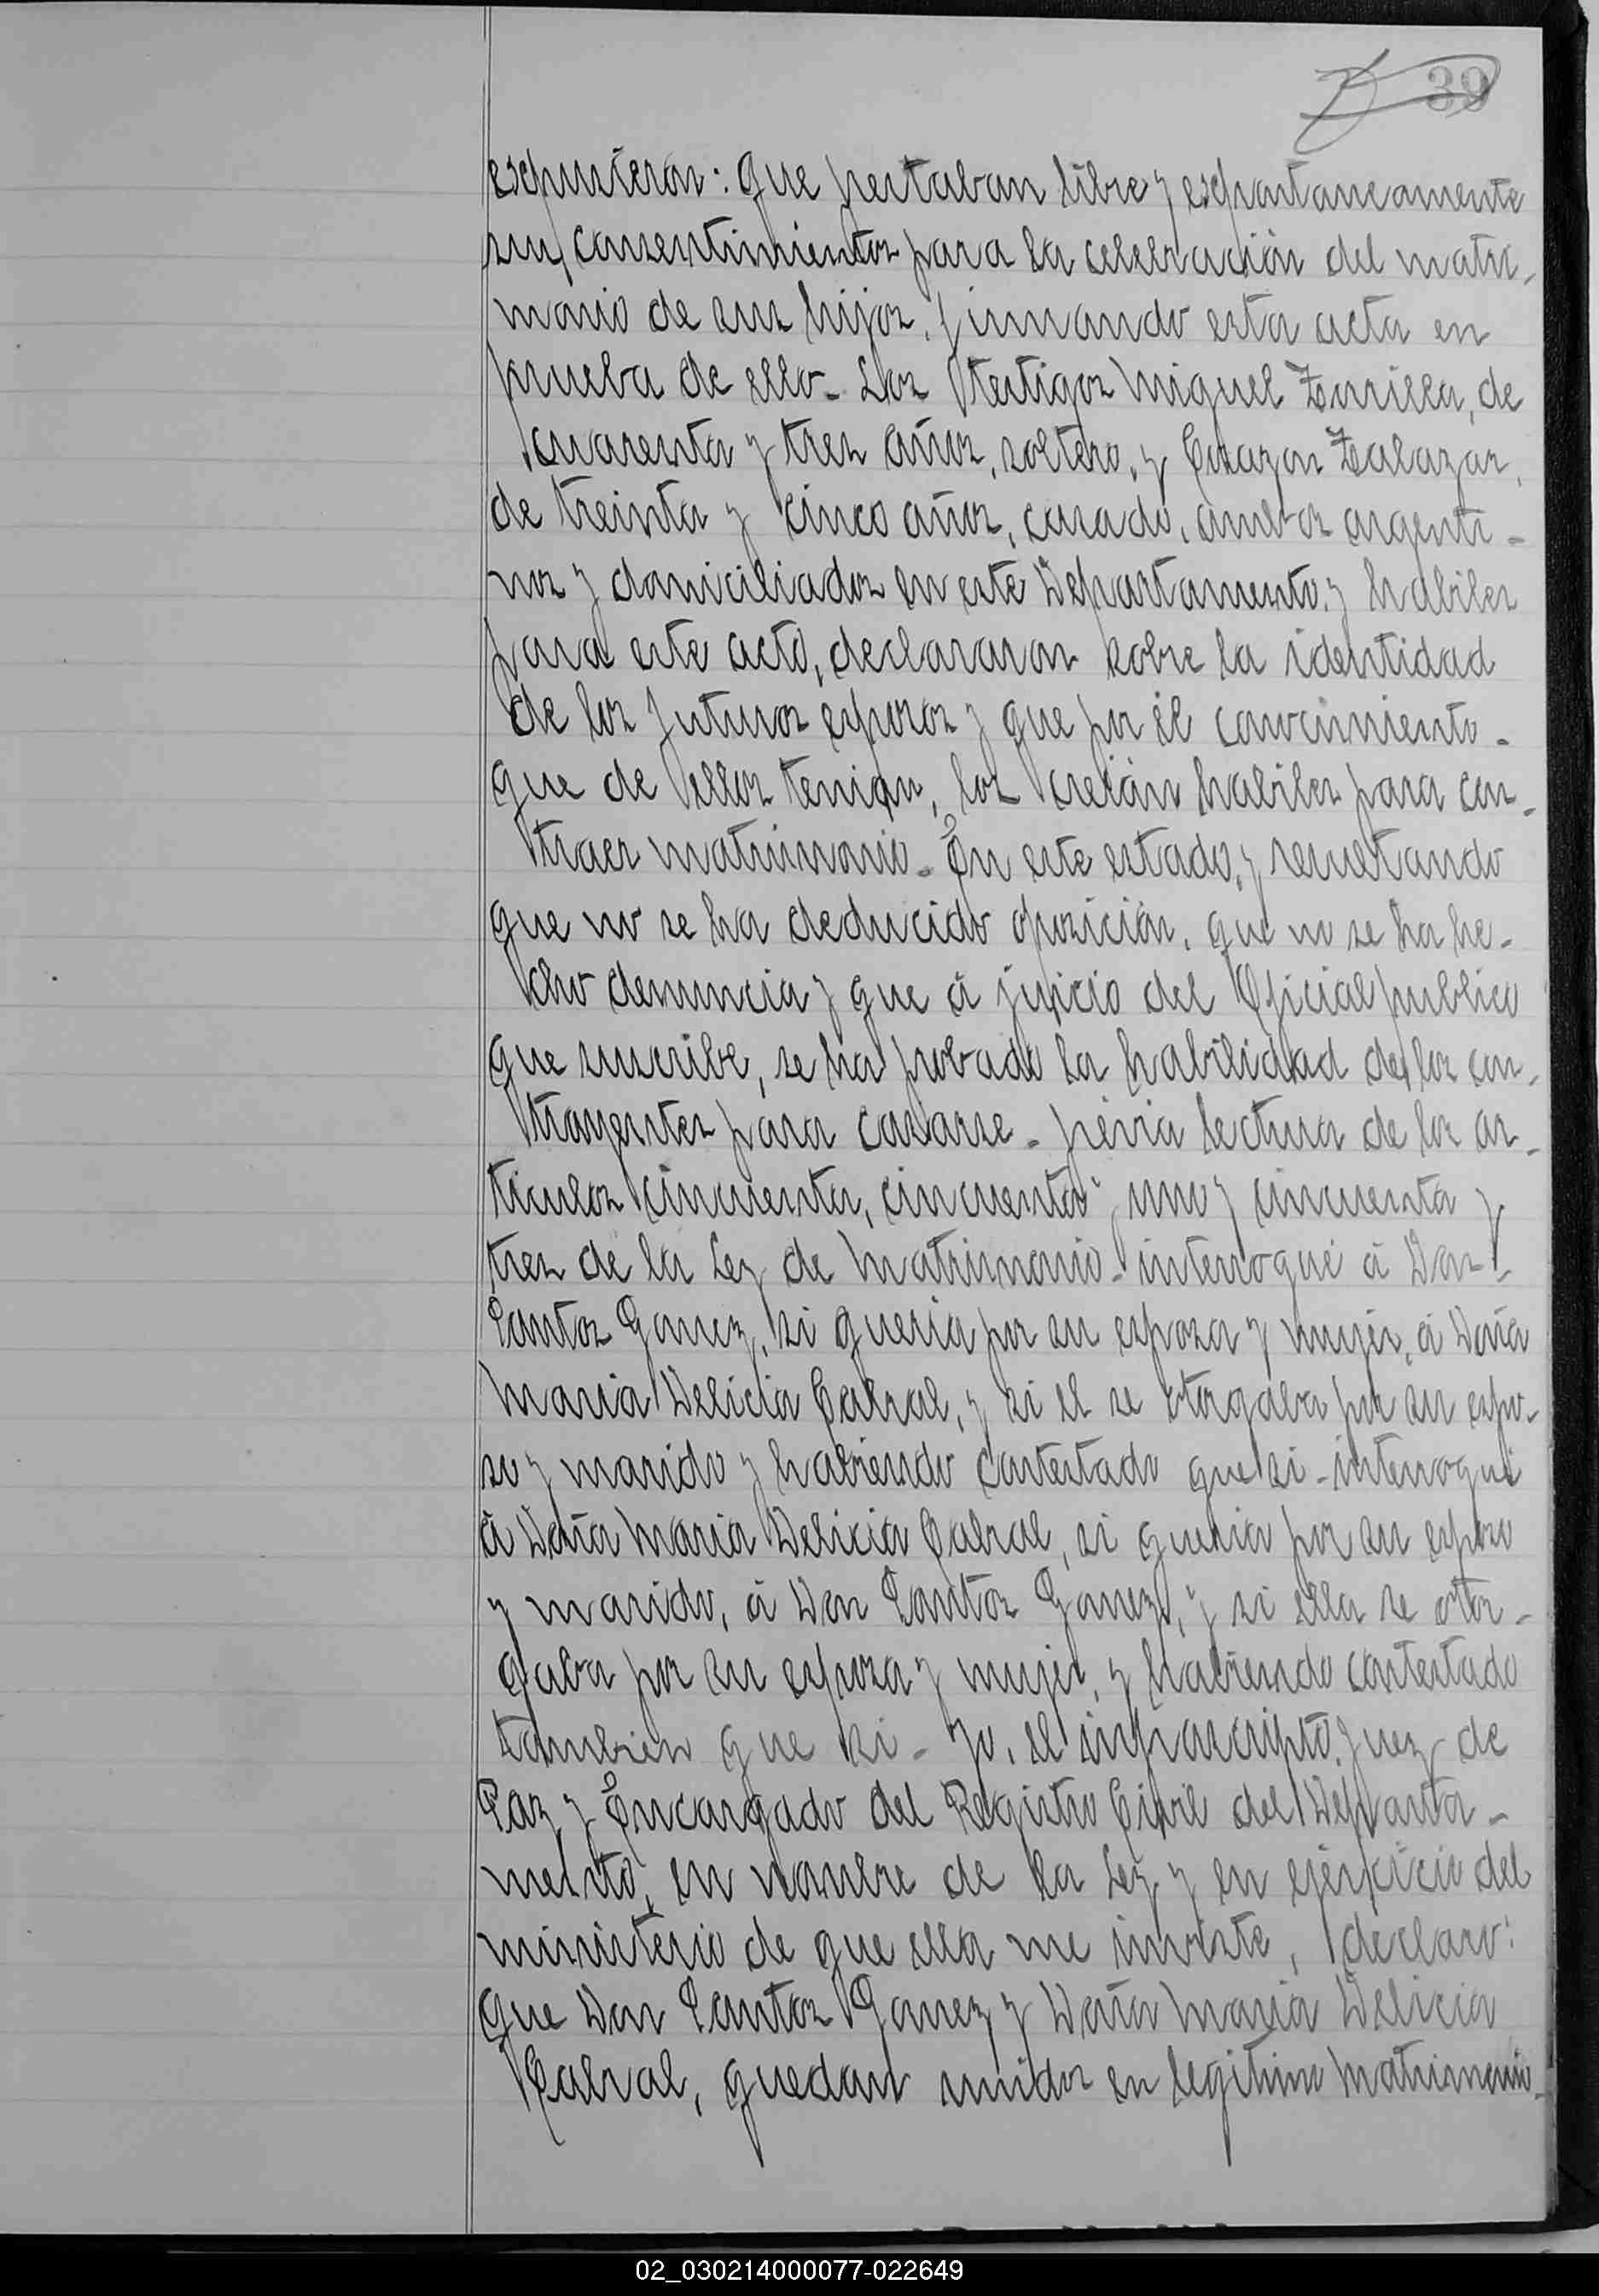 39
expusieron: que prestaban libre y expontaneamente
sus consentimientos para la celebración del matri-
monio de sus hijos, firmando esta acta en
prueba de ello - Los testigos Miguel Zurilla, de
cuarenta y tres años, soltero, y Corazon Zalazar,
de treinta y cinco años, casado, ambos argenti-
nos y domiciliados en este Departamento, y habiles
para este acto, declararon sobre la identidad
de los futuros esposos y que por el conocimiento -
que de ellos tenian, los creián habiles para con-
traer matrimonio - En este estado, y resultando
que no se ha deducido oposición, que no se ha he-
cho denuncia y que á juicio del Oficial publico
que suscribe, se ha probado la habilidad de los con-
trayentes para casarse - prévia lectura de los ar-
ticulos cincuenta, cincuenta y uno y cincuenta y
tres de la Ley de Matrimonio - interrogué á Don -
Santos Gomez, si queria por su esposa y mujer, á Doña
Maria Delicia Cabral, y si el se otorgaba por su espo-
so y marido y habiendo contestado que si - interrogué
á Doña Maria Delicia Cabral, si queria por su esposo
y marido, á Don Santos Gomez, y si ella se otor-
gaba por su esposa y mujer, y habiendo contestado
tambien que si - Yo, el infrascripto Juez de
Paz y Encargado del Registro Civil del Departa-
mento, en nombre de la Ley y en ejercicio del
ministerio de que ella me inviste, declaro:
que Don Santos Gomez y Doña Maria Delicia
Cabral, quedan unidos en legitimo matrimonio -
02_030214000077-022649